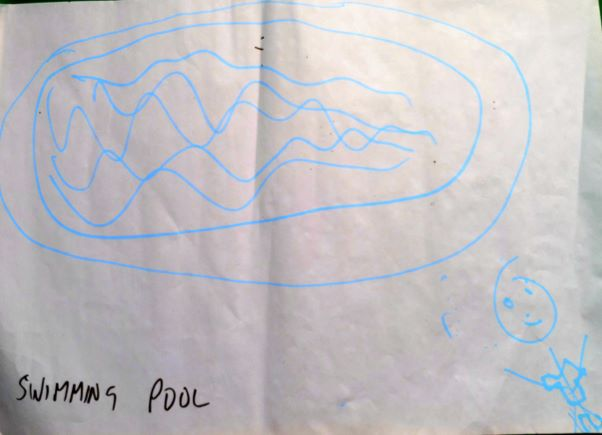 SWIMMING POOL